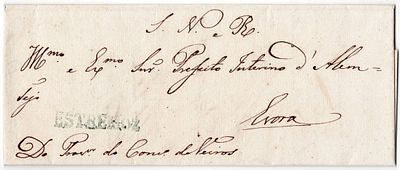 S. N. e R.
Illmo. e Exmo. Snr. Prefeito Interino d'Alem=
tejo
ESTREMOZ
Evora
Do Prov.or do Conc.o de Veiros